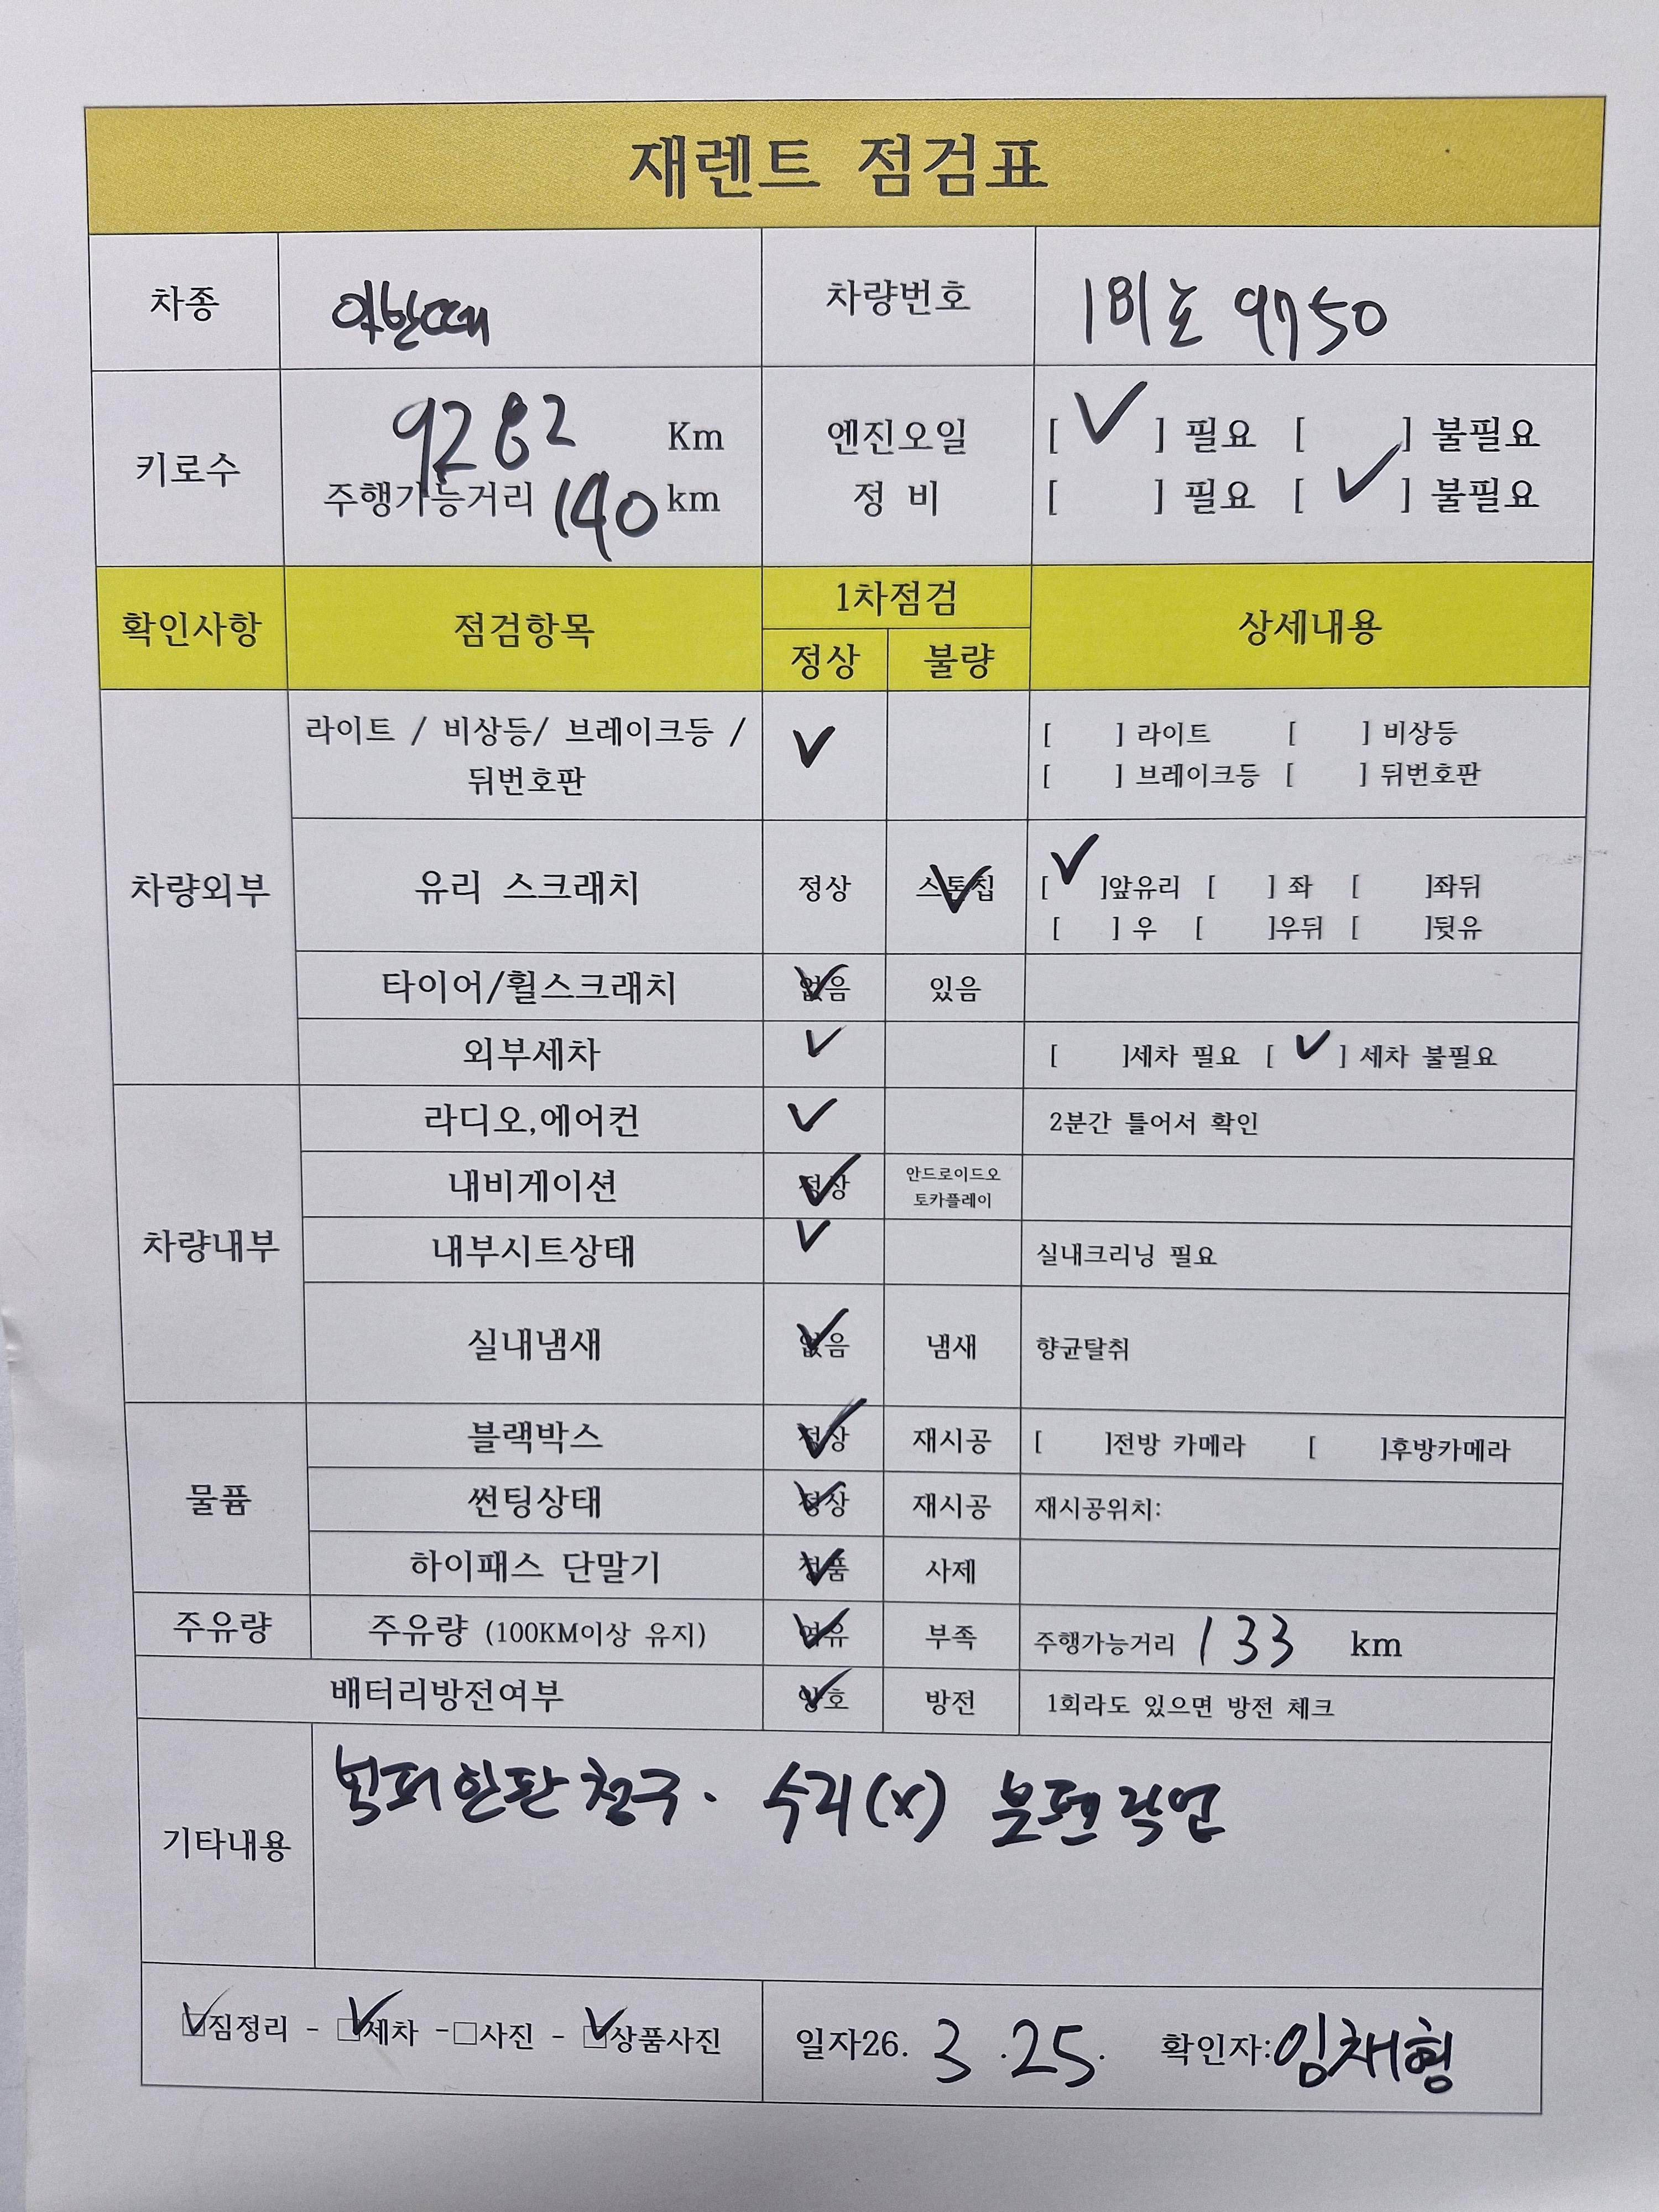 재렌트 점검표
차종 아반떼 차량번호 181호 9750
키로수 9282 Km 엔진오일 [ ✓ ] 필요 [ ] 불필요
주행가능거리 140 km 정 비 [ ] 필요 [ ✓ ] 불필요
확인사항 점검항목 1차점검 상세내용
정상 불량
차량외부 라이트 / 비상등/ 브레이크등 / ✓ [ ] 라이트 [ ] 비상등
뒤번호판 [ ] 브레이크등 [ ] 뒤번호판
유리 스크래치 정상 스톤칩 ✓ [ ✓ ]앞유리 [ ] 좌 [ ]좌뒤
[ ] 우 [ ]우뒤 [ ]뒷유
타이어/휠스크래치 없음 ✓ 있음
외부세차 ✓ [ ]세차 필요 [ ✓ ] 세차 불필요
차량내부 라디오,에어컨 ✓ 2분간 틀어서 확인
내비게이션 정상 ✓ 안드로이드오
토카플레이
내부시트상태 ✓ 실내크리닝 필요
실내냄새 없음 ✓ 냄새 향균탈취
물품 블랙박스 정상 ✓ 재시공 [ ]전방 카메라 [ ]후방카메라
썬팅상태 정상 ✓ 재시공 재시공위치:
하이패스 단말기 정품 ✓ 사제
주유량 주유량 (100KM이상 유지) 여유 ✓ 부족 주행가능거리 133 km
배터리방전여부 양호 ✓ 방전 1회라도 있으면 방전 체크
기타내용 청구. 수리(x) 붓펜작업
☑짐정리 - ☑세차 -□사진 - ☑상품사진 일자26. 3 .25. 확인자:임채형